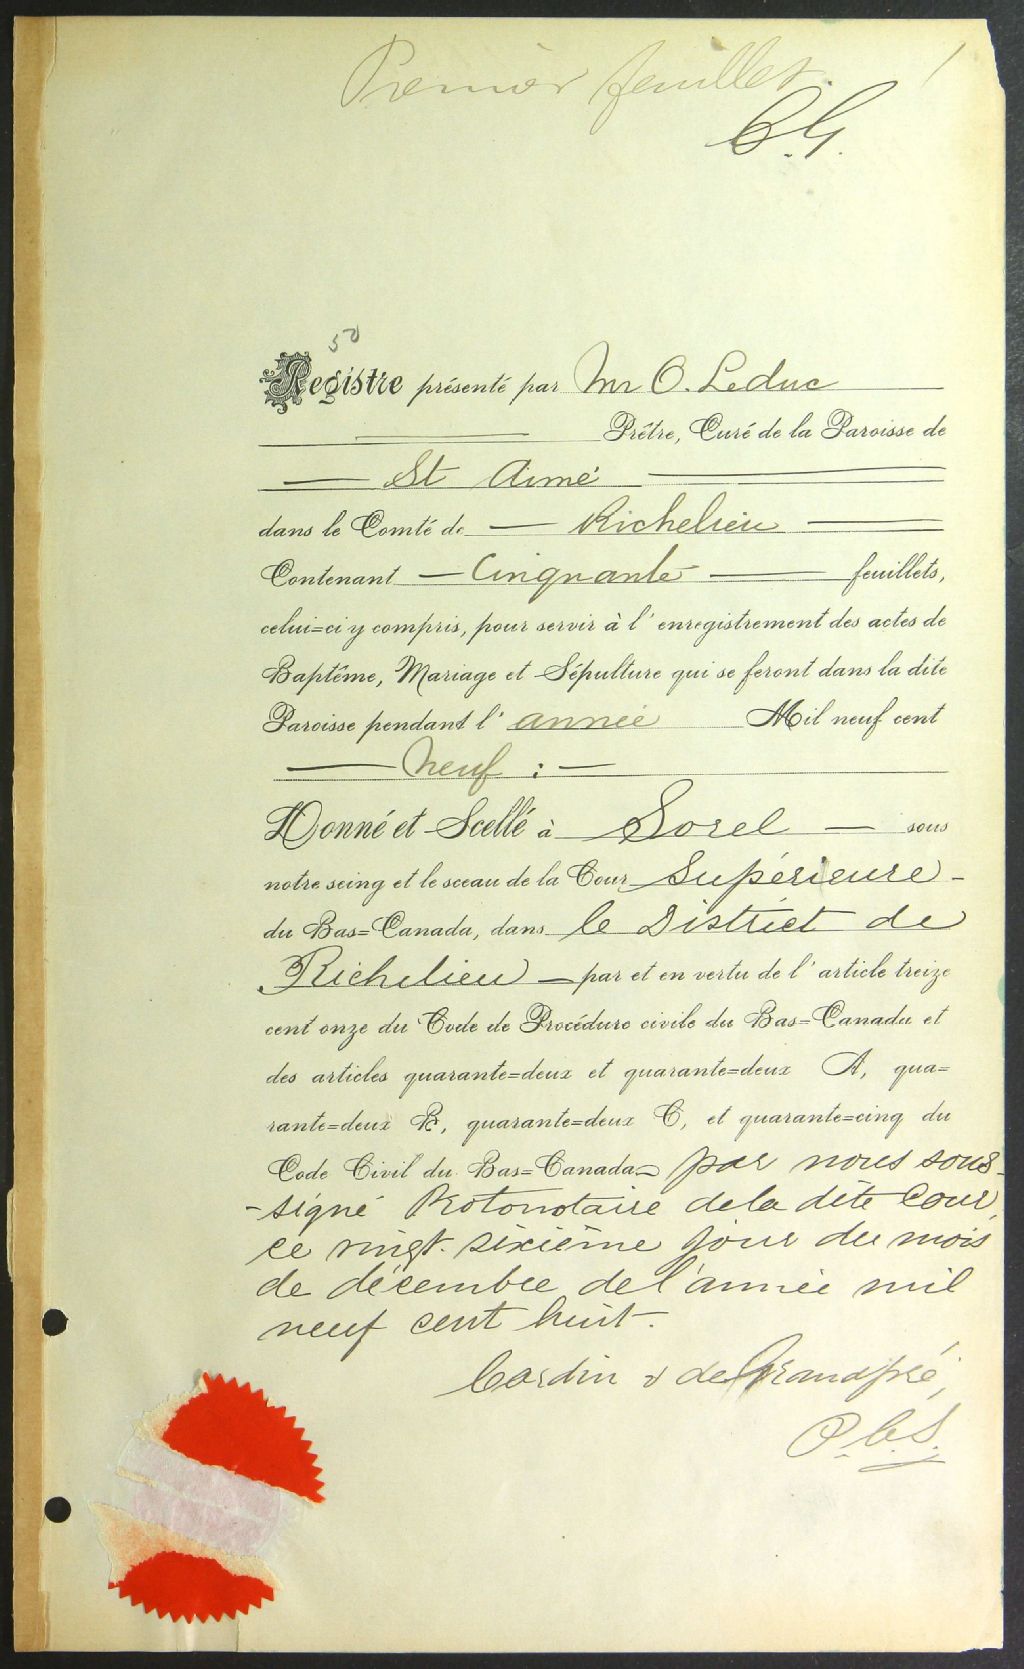 Premier feuillet. 1
C.G.
50
Registre présenté par Mr O. Leduc
Prêtre, Curé de la Paroisse de
St Aimé
dans le Comté de Richelieu
Contenant Cinquante feuillets,
celui=ci y compris, pour servir à l'enregistrement des actes de
Baptême, Mariage et Sépulture qui se feront dans la dite
Paroisse pendant l'année Mil neuf cent
neuf :
Donné et Scellé à Sorel sous
notre seing et le sceau de la Cour Supérieure
du Bas=Canada, dans le District de
Richelieu par et en vertu de l'article treize
cent onze du Code de Procédure civile du Bas=Canada et
des articles quarante=deux et quarante=deux A, qua=
rante=deux B, quarante=deux C, et quarante=cinq du
Code Civil du Bas=Canada par nous sous-
-signé Protonotaire de la dite Cour,
ce vingt-sixième jour du mois
de décembre de l'année mil
neuf cent huit.
Cardin & de Grandpré,
P.C.S.